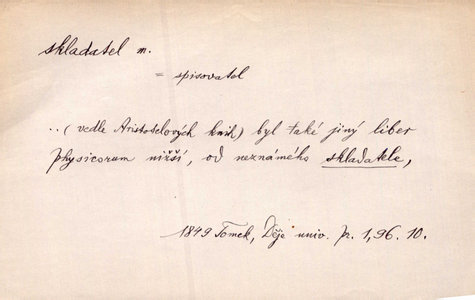 skladatel m.
= spisovatel
..(vedle Aristotelových knih) byl také jiný liber
physicorum nižší, od neznámého skladatele,
1849 Tomek, Děje univ. p. 1,96.10.